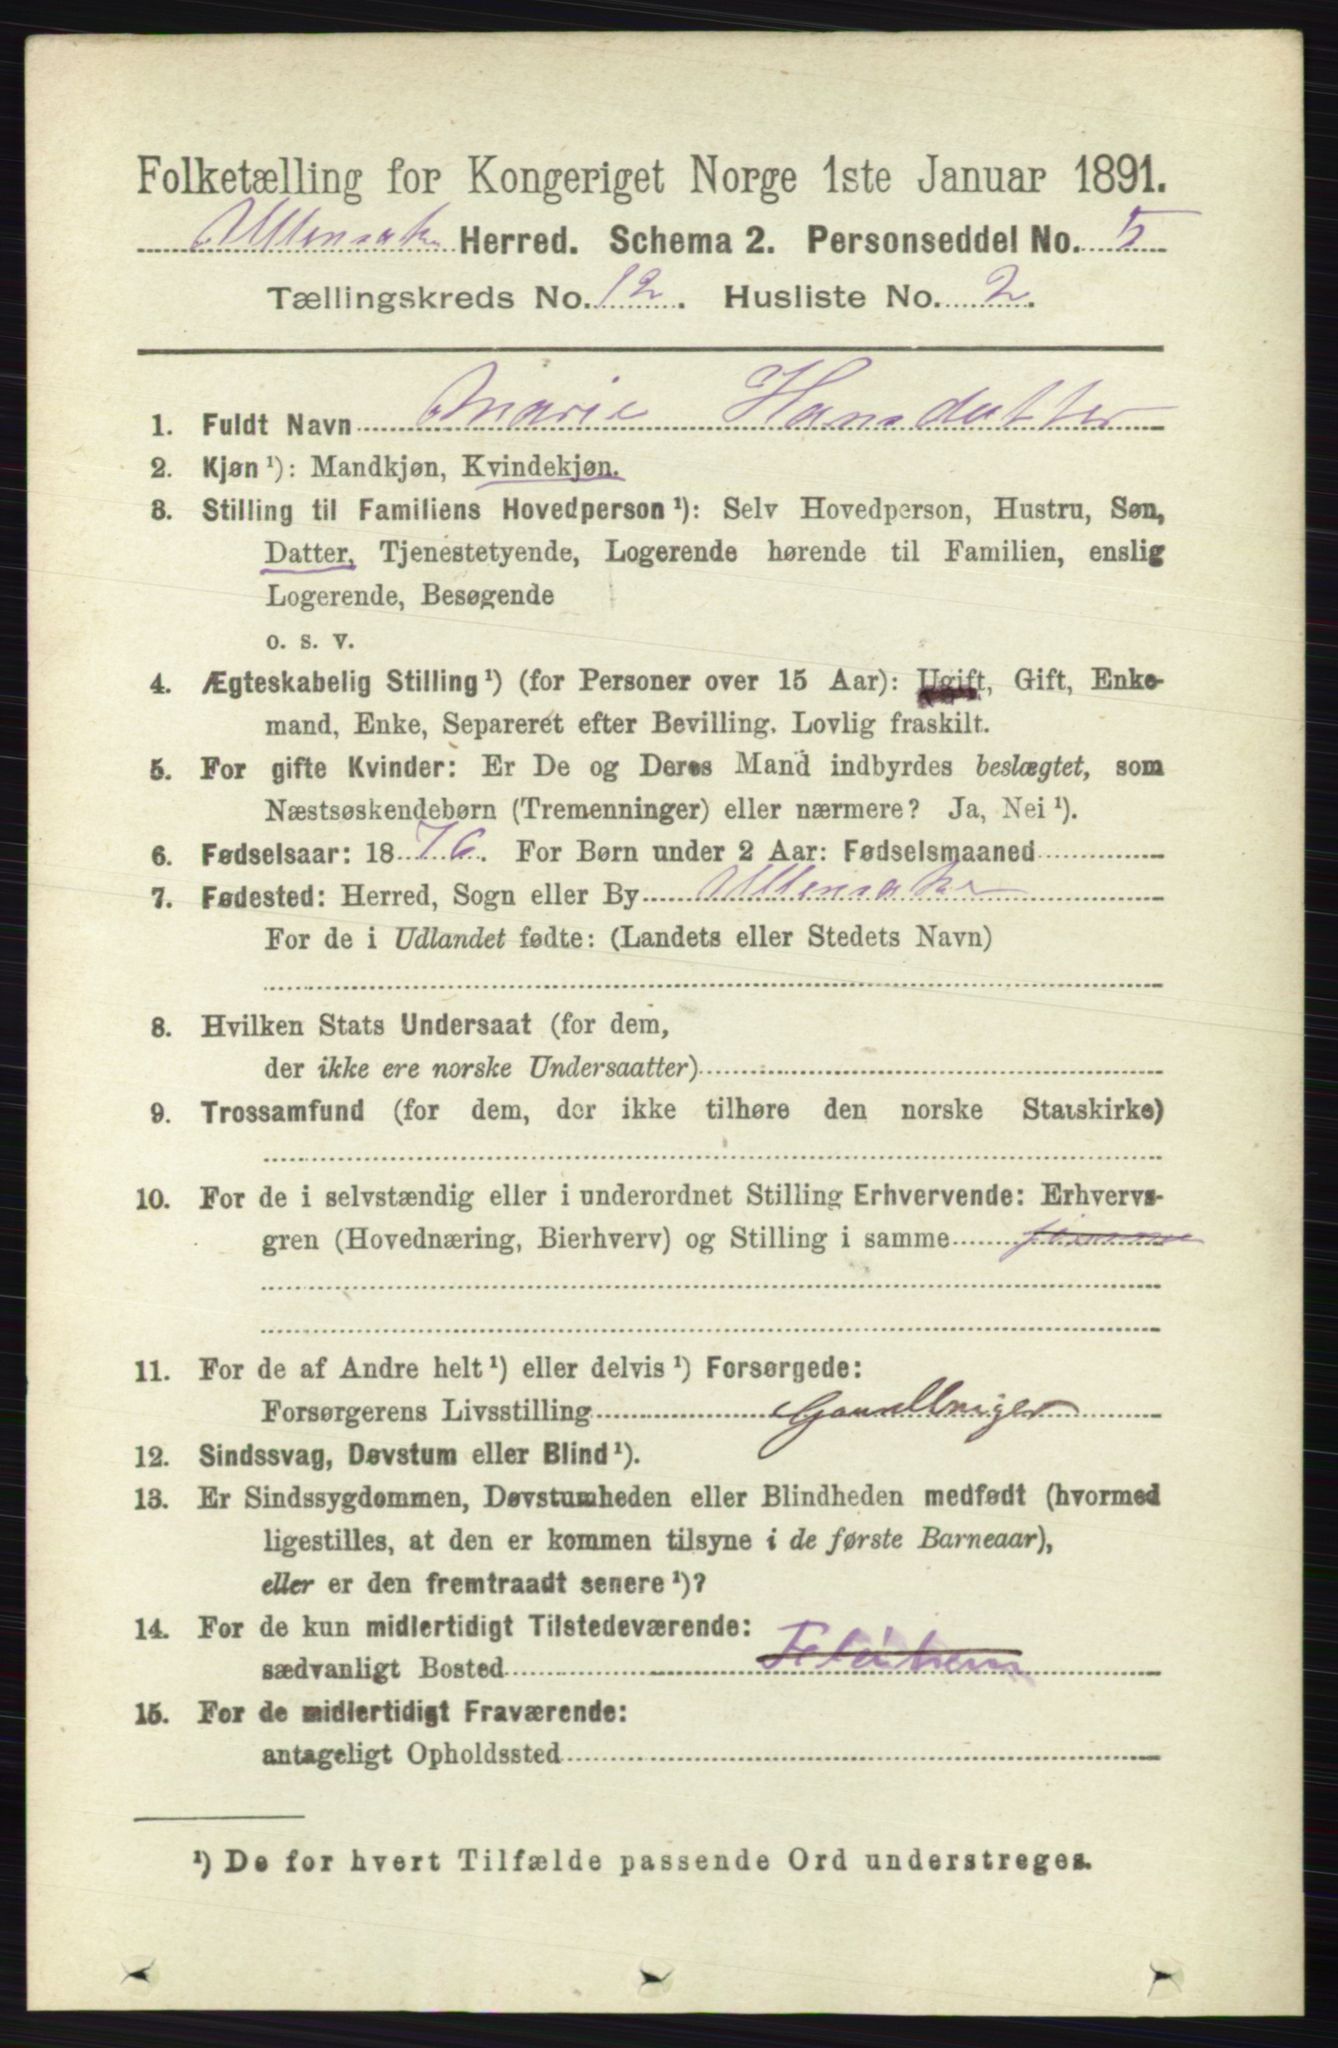 Folketælling for Kongeriget Norge 1ste Januar 1891.
Ullensaker Herred. Schema 2. Personseddel No. 5
Tællingskreds No. 12. Husliste No. 2.
1. Fuldt Navn Marie Hansdatter
2. Kjøn¹): Mandkjøn, Kvindekjøn.
3. Stilling til Familiens Hovedperson¹): Selv Hovedperson, Hustru, Søn,
Datter, Tjenestetyende, Logerende hørende til Familien, enslig
Logerende, Besøgende
o. s. v.
4. Ægteskabelig Stilling¹) (for Personer over 15 Aar): Ugift, Gift, Enke-
mand, Enke, Separeret efter Bevilling. Lovlig fraskilt.
5. For gifte Kvinder: Er De og Deres Mand indbyrdes beslægtet, som
Næstsøskendebørn (Tremenninger) eller nærmere? Ja, Nei¹).
6. Fødselsaar: 1876. For Børn under 2 Aar: Fødselsmaaned
7. Fødested: Herred, Sogn eller By Ullensaker
For de i Udlandet fødte: (Landets eller Stedets Navn)
8. Hvilken Stats Undersaat (for dem,
der ikke ere norske Undersaatter)
9. Trossamfund (for dem, der ikke tilhøre den norske Statskirke)
10. For de i selvstændig eller i underordnet Stilling Erhvervende: Erhvervs-
gren (Hovednæring, Bierhverv) og Stilling i samme
11. For de af Andre helt¹) eller delvis¹) Forsørgede:
Forsørgerens Livsstilling
12. Sindssvag, Døvstum eller Blind¹).
13. Er Sindssygdommen, Døvstumheden eller Blindheden medfødt (hvormed
ligestilles, at den er kommen tilsyne i de første Barneaar),
eller er den fremtraadt senere¹)?
14. For de kun midlertidigt Tilstedeværende:
sædvanligt Bosted
15. For de midlertidigt Fraværende:
antageligt Opholdssted
¹) De for hvert Tilfælde passende Ord understreges.